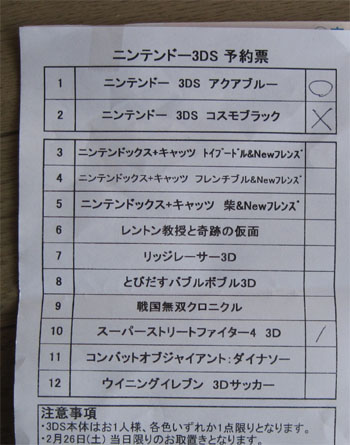 ニンテンドー3DS 予約票
1 ニンテンドー 3DS アクアブルー ○
2 ニンテンドー 3DS コスモブラック ×
3 ニンテンドックス+キャッツ トイプードル&Newフレンズ
4 ニンテンドックス+キャッツ フレンチブル&Newフレンズ
5 ニンテンドックス+キャッツ 柴&Newフレンズ
6 レントン教授と奇跡の仮面
7 リッジレーサー3D
8 とびだすパブルボブル3D
9 戦国無双クロニクル
10 スーパーストリートファイター4 3D /
11 コンバットオブジャイアント:ダイナソー
12 ウイニングイレブン 3Dサッカー
注意事項
・3DS本体はお1人様、各色いずれか1点限りとなります。
・2月26日(土) 当日限りのお取置きとなります。